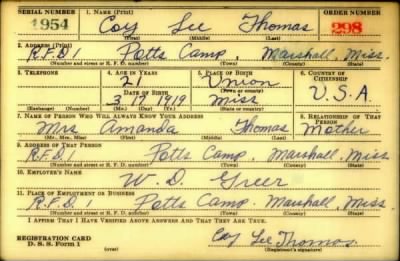 SERIAL NUMBER 1. NAME (Print) ORDER NUMBER
1954 Coy Lee Thomas 298
(First) (Middle) (Last)
2. ADDRESS (Print)
R.F.D. 1 Potts Camp, Marshall, Miss.
(Number and street or R. F. D. number) (Town) (County) (State)
3. TELEPHONE 4. AGE IN YEARS 5. PLACE OF BIRTH 6. COUNTRY OF CITIZENSHIP
21 Union
DATE OF BIRTH (Town or county)
3 17 1919 Miss U.S.A
(Exchange) (Number) (Mo.) (Day) (Yr.) (State or country)
7. NAME OF PERSON WHO WILL ALWAYS KNOW YOUR ADDRESS 8. RELATIONSHIP OF THAT PERSON
Mrs Amanda Thomas Mother
(Mr., Mrs., Miss) (First) (Middle) (Last)
9. ADDRESS OF THAT PERSON
R.F.D. 1 Potts Camp Marshall, Miss.
(Number and street or R. F. D. number) (Town) (County) (State)
10. EMPLOYER'S NAME
W. D. Greer
11. PLACE OF EMPLOYMENT OR BUSINESS
R.F.D. 1 Potts Camp. Marshall, Miss.
(Number and street or R. F. D. number) (Town) (County) (State)
I AFFIRM THAT I HAVE VERIFIED ABOVE ANSWERS AND THAT THEY ARE TRUE.
REGISTRATION CARD
D. S. S. Form 1 (over) Coy Lee Thomas
(Registrant's signature)